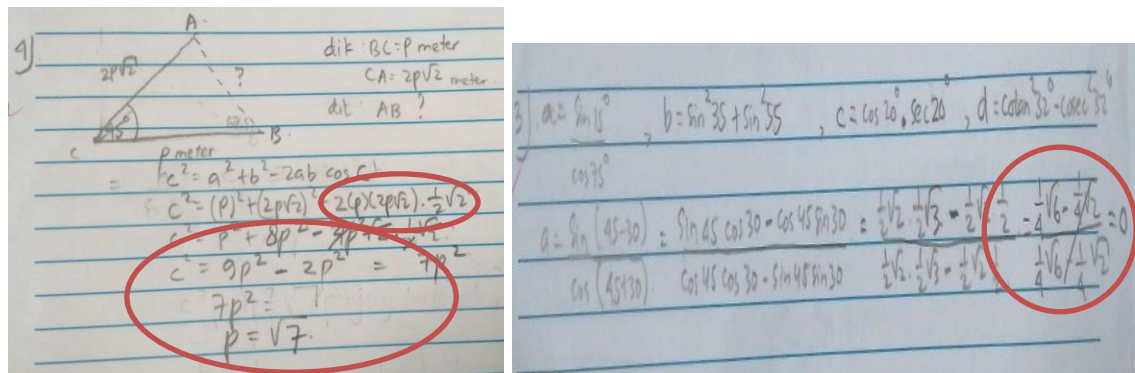 4)
A
2p√2
?
C
45°
B
p meter
dik : BC = p meter
CA = 2p√2 meter
dit : AB ?
= c² = a² + b² - 2ab cos C
c² = (p)² + (2p√2)² - 2(p)(2p√2) . ½√2
c² = p² + 8p² -
c² = 9p² - 2p² = 7p²
7p² =
p = √7.
3) a = sin 15° / cos 75° , b = sin²35 + sin²55 , c = cos 20° . sec 20° , d = cotan²32° - cosec²32°
a = sin (45-30) / cos (45+30) = sin 45 cos 30 - cos 45 sin 30 / cos 45 cos 30 - sin 45 sin 30 = ½√2 . ½√3 - ½√2 . ½ / ½√2 . ½√3 - ½√2 . ½ = ¼√6 - ¼√2 / ¼√6 / ¼√2 = 0